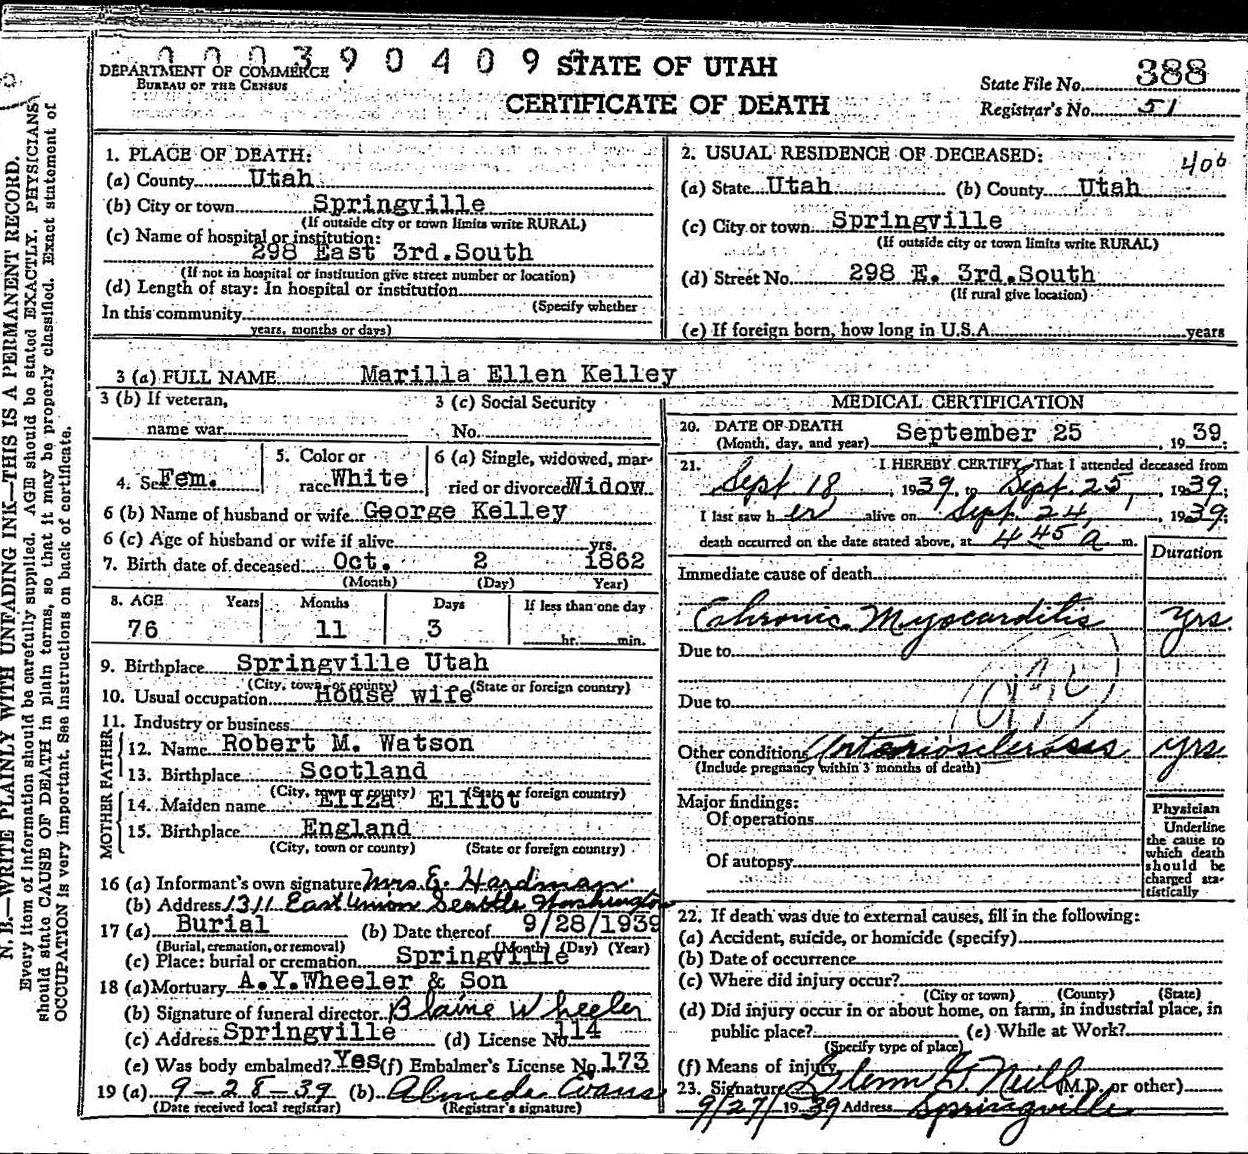 000390409
DEPARTMENT OF COMMERCE
BUREAU OF THE CENSUS
STATE OF UTAH
CERTIFICATE OF DEATH
State File No. 388
Registrar's No. 51
N. B.—WRITE PLAINLY WITH UNFADING INK—THIS IS A PERMANENT RECORD.
Every item of information should be carefully supplied. AGE should be stated EXACTLY. PHYSICIANS
should state CAUSE OF DEATH in plain terms, so that it may be properly classified. Exact statement of
OCCUPATION is very important. See instructions on back of certificate.
1. PLACE OF DEATH:
(a) County Utah
(b) City or town Springville
(If outside city or town limits write RURAL)
(c) Name of hospital or institution:
298 East 3rd.South
(If not in hospital or institution give street number or location)
(d) Length of stay: In hospital or institution
(Specify whether
In this community
years, months or days)
2. USUAL RESIDENCE OF DECEASED:
406
(a) State Utah (b) County Utah
(c) City or town Springville
(If outside city or town limits write RURAL)
(d) Street No. 298 E. 3rd.South
(If rural give location)
(e) If foreign born, how long in U.S.A. years
3 (a) FULL NAME Marilla Ellen Kelley
3 (b) If veteran,
name war
3 (c) Social Security
No.
4. Sex Fem.
5. Color or
race White
6 (a) Single, widowed, mar-
ried or divorced Widow
6 (b) Name of husband or wife George Kelley
6 (c) Age of husband or wife if alive yrs.
7. Birth date of deceased Oct. 2 1862
(Month) (Day) Year)
8. AGE Years Months Days If less than one day
76 11 3 hr. min.
9. Birthplace Springville Utah
(City, town or county) (State or foreign country)
10. Usual occupation House wife
11. Industry or business
FATHER
12. Name Robert M. Watson
13. Birthplace Scotland
(City, town or county) (State or foreign country)
MOTHER
14. Maiden name Eliza Elliot
15. Birthplace England
(City, town or county) (State or foreign country)
16 (a) Informant's own signature Mrs E. Hardman
(b) Address 1311 East Union Seattle Washington
17 (a) Burial (b) Date thereof 9/28/1939
(Burial, cremation, or removal) (Month) (Day) (Year)
(c) Place: burial or cremation Springville
18 (a) Mortuary A.Y.Wheeler & Son
(b) Signature of funeral director Blaine Wheeler
(c) Address Springville (d) License No. 114
(e) Was body embalmed? Yes (f) Embalmer's License No. 173
19 (a) 9-28-39 (b) Almeda Evans
(Date received local registrar) (Registrar's signature)
MEDICAL CERTIFICATION
20. DATE OF DEATH
(Month, day, and year) September 25, 1939;
21. I HEREBY CERTIFY, That I attended deceased from
Sept 18, 1939, to Sept. 25, 1939;
I last saw her alive on Sept. 24, 1939;
death occurred on the date stated above, at 4 45 a m.
Duration
Immediate cause of death
Chronic Myocarditis yrs.
Due to
Due to
Other conditions Arteriosclerosis yrs
(Include pregnancy within 3 months of death)
Major findings:
Of operations
Of autopsy
Physician
Underline
the cause to
which death
should be
charged sta-
tistically
22. If death was due to external causes, fill in the following:
(a) Accident, suicide, or homicide (specify)
(b) Date of occurrence
(c) Where did injury occur?
(City or town) (County) (State)
(d) Did injury occur in or about home, on farm, in industrial place, in
public place? (e) While at Work?
(Specify type of place)
(f) Means of injury
23. Signature Glenn G. Neill (M.D. or other)
9/27/1939 Address Springville